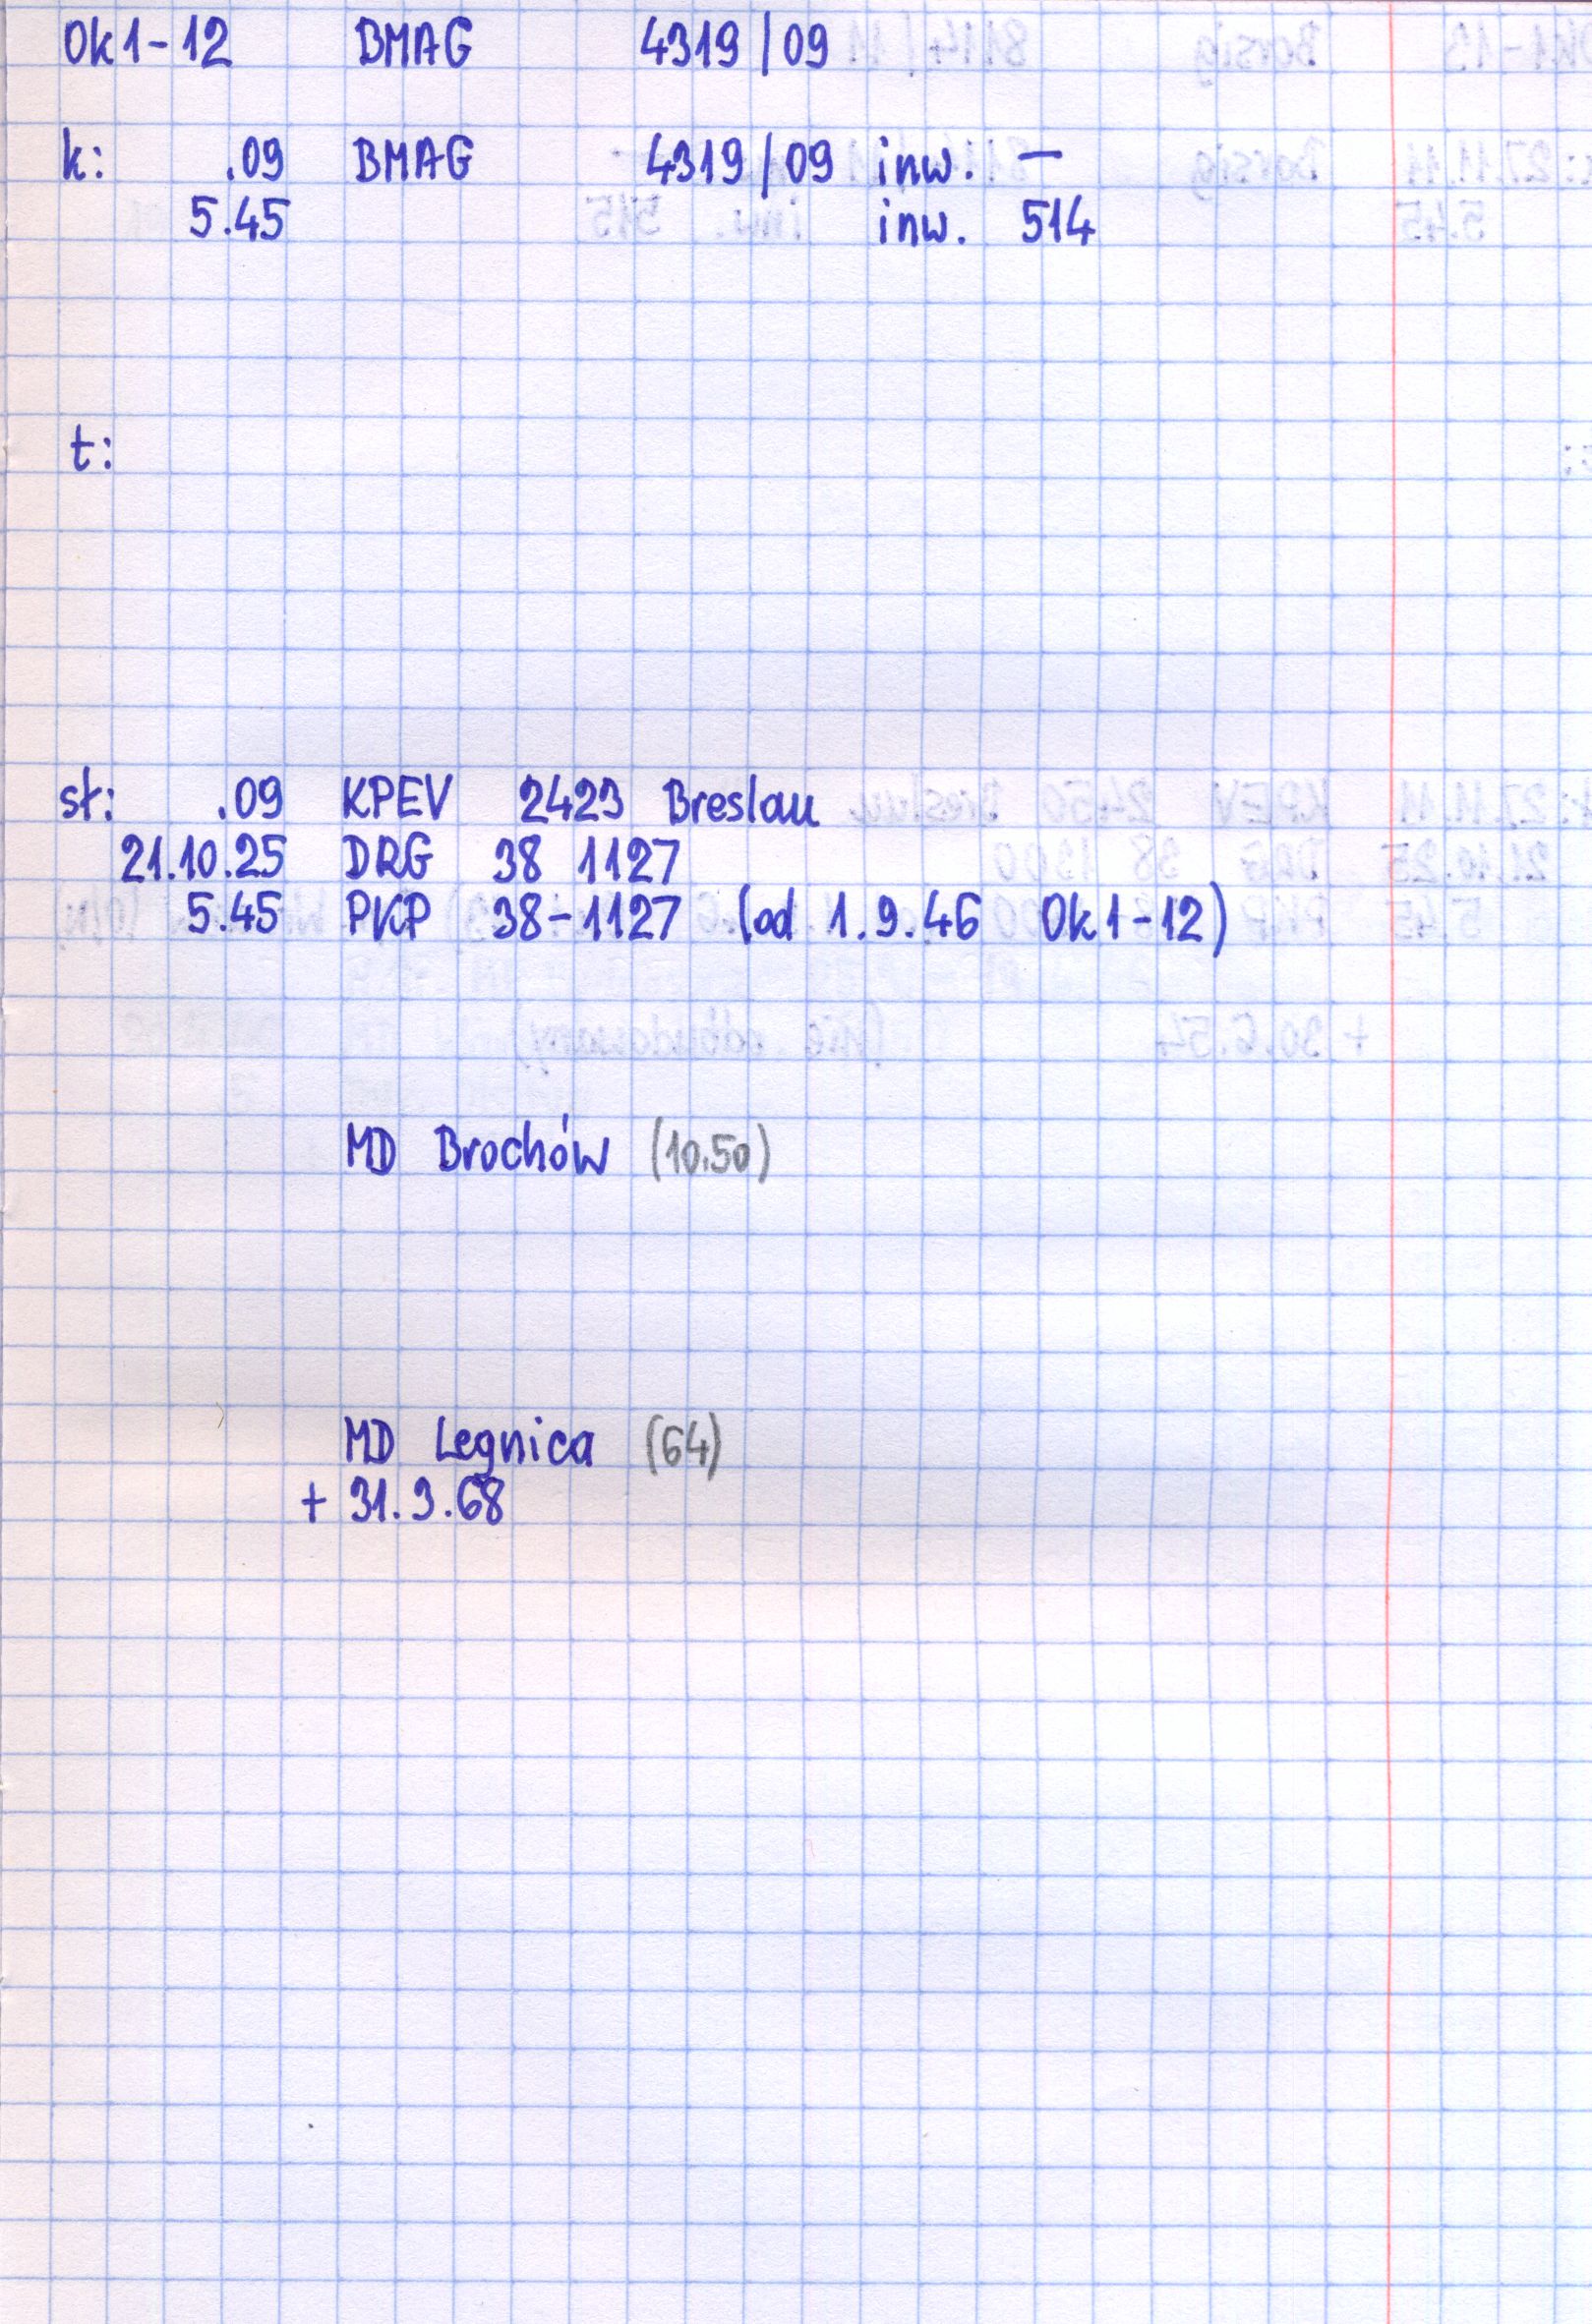 Ok1-12 BMAG 4319/09
k: .09 BMAG 4319/09 inw. —
5.45 inw. 514
t:
sł: .09 KPEV 2423 Breslau
21.10.25 DRG 38 1127
5.45 PKP 38-1127 (od 1.9.46 Ok1-12)
MD Brochów (10.50)
MD Legnica (64)
+ 31.3.68